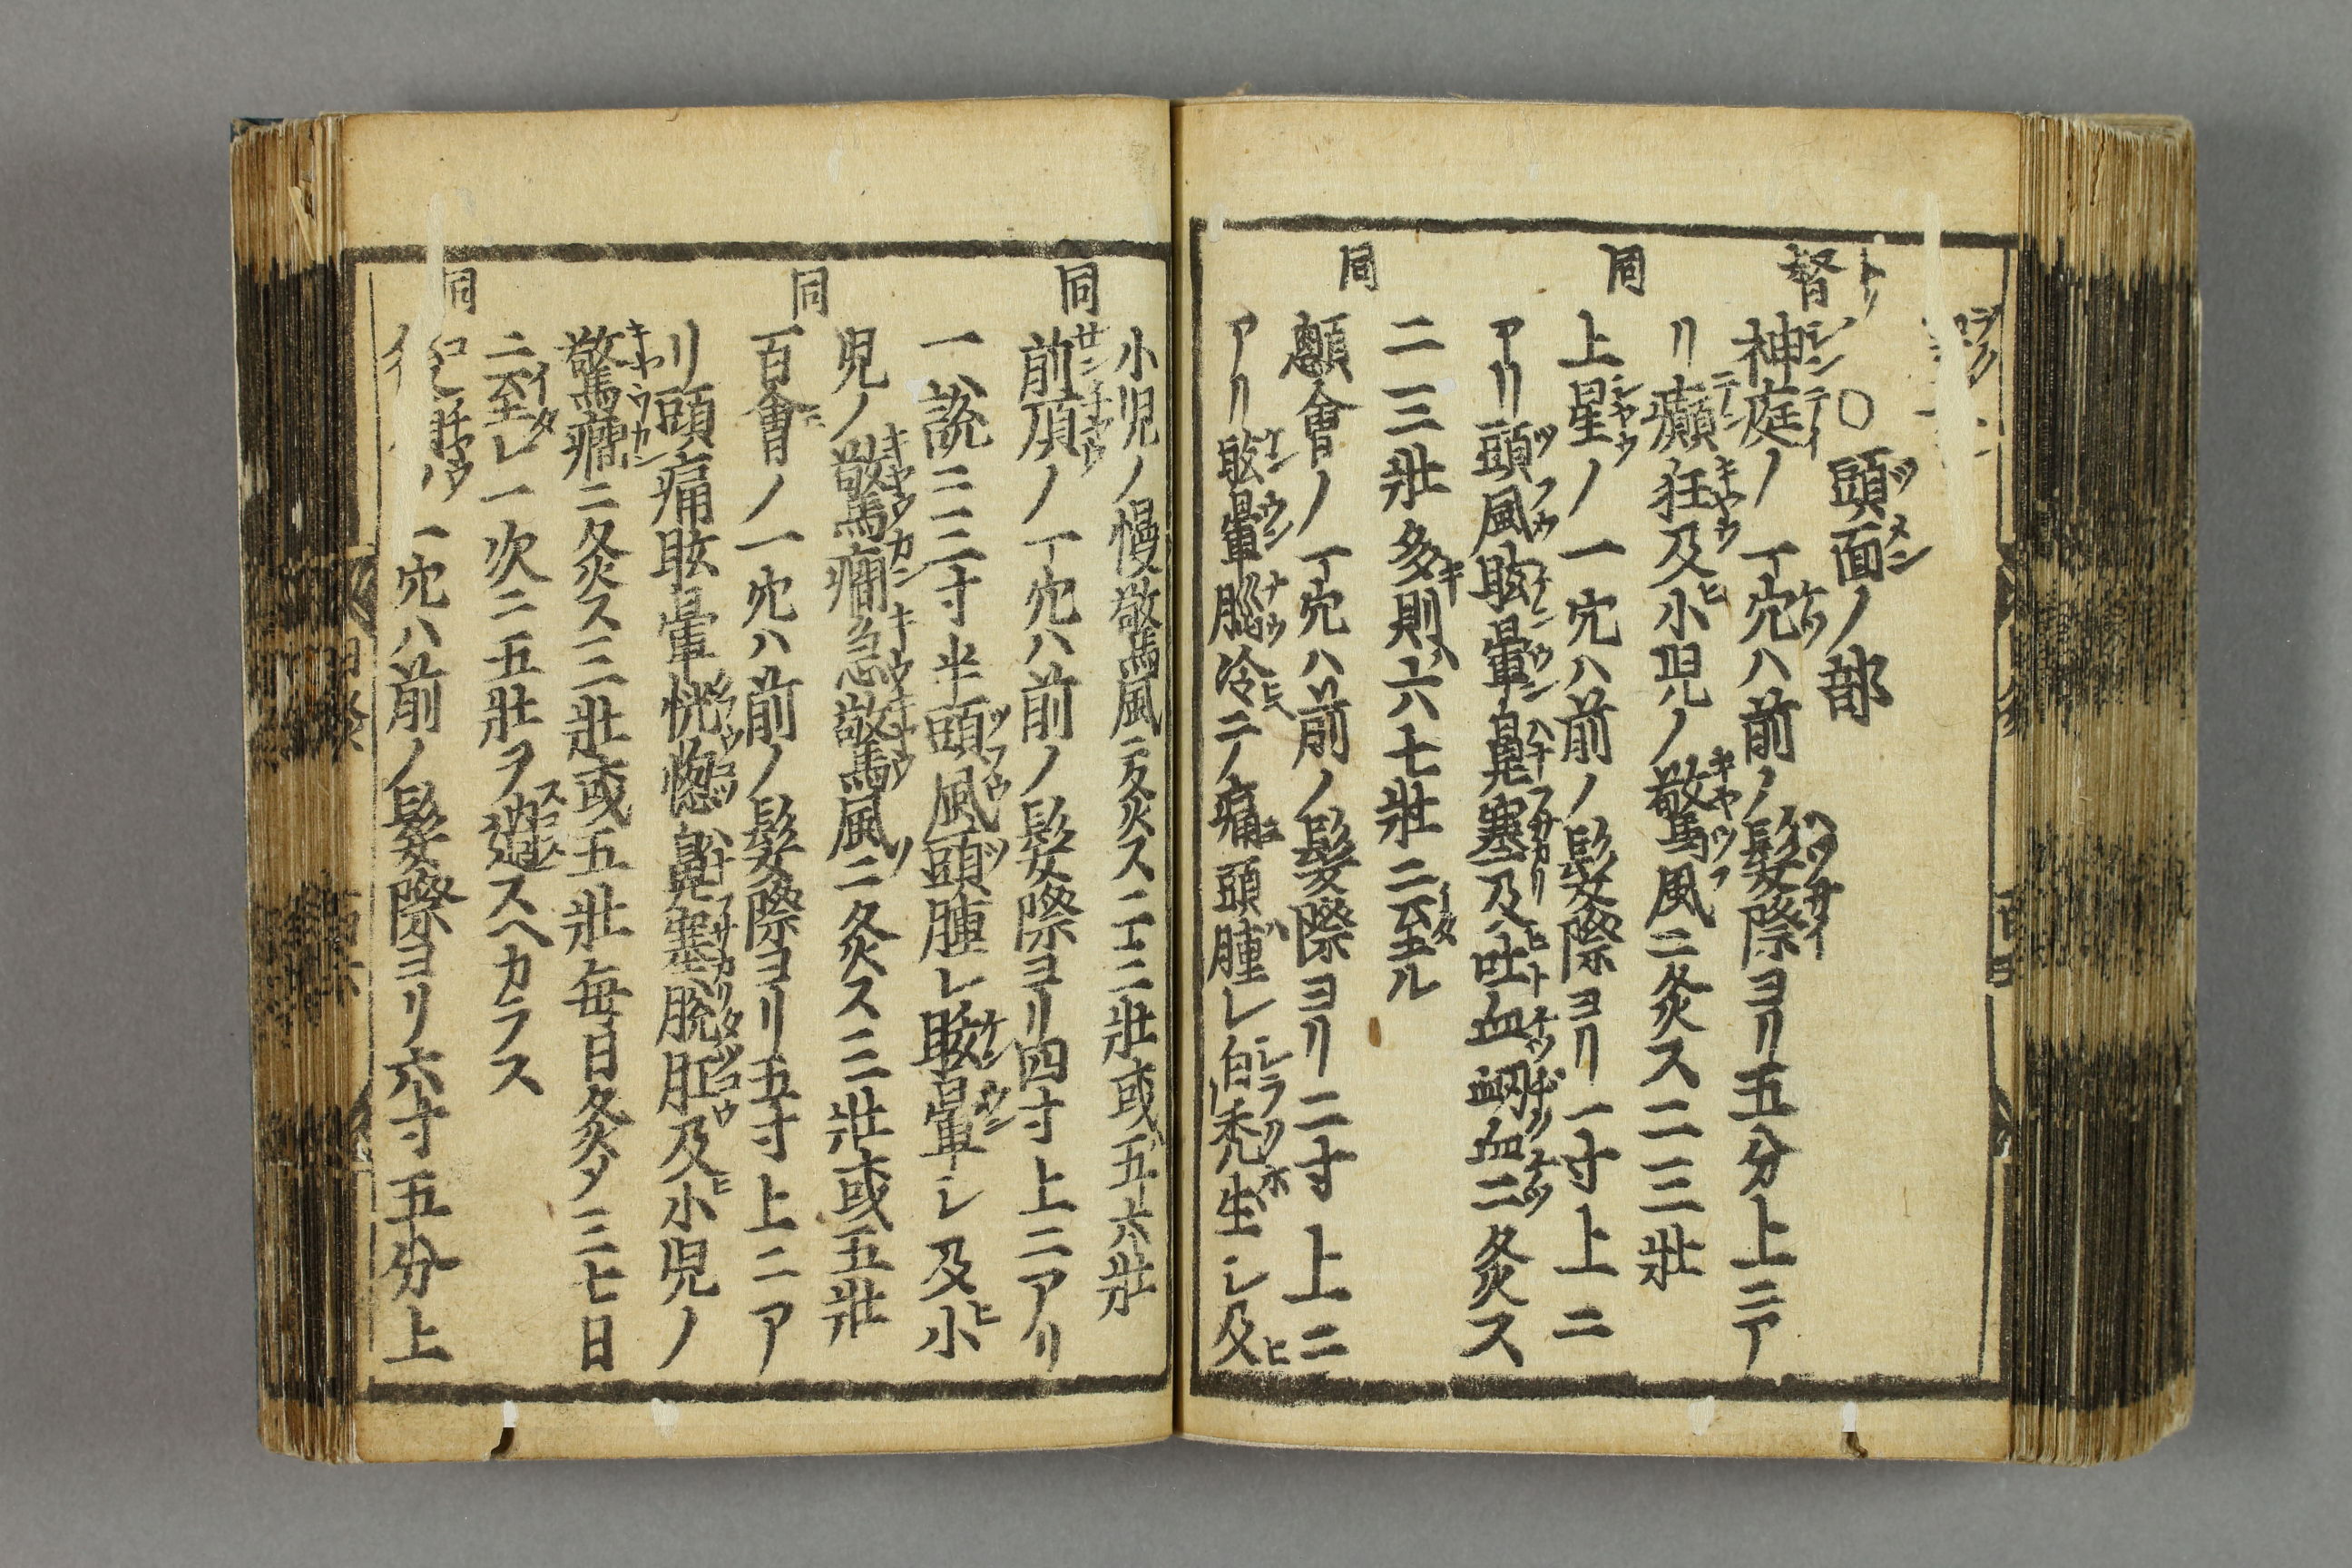 ○頭面ノ部
督 神庭ノ一穴ハ前ノ髮際ヨリ五分上ニア
リ癲狂及小児ノ驚風ニ灸ス二三壯
同 上星ノ一穴ハ前ノ髮際ヨリ一寸上ニ
アリ頭風眩暈鼻塞及吐血衂血ニ灸ス
二三壯多則六七壯ニ至ル
同 顖會ノ一穴ハ前ノ髮際ヨリ二寸上ニ
アリ眩暈腦冷テ痛頭腫レ白禿生シ及
小児ノ慢驚風ニ灸ス二三壯或五六壯
同 前頂ノ一穴ハ前ノ髮際ヨリ四寸上ニアリ
一説三寸半頭風頭腫レ眩暈シ及小
児ノ驚癇急驚風ニ灸ス三壯或五壯
同 百會ノ一穴ハ前ノ髮際ヨリ五寸上ニア
リ頭痛眩暈恍惚鼻塞脱肛及小児ノ
驚癇ニ灸ス三壯或五壯毎日灸〆三七日
ニ至レ一次ニ五壯ヲ過スヘカラス
同 ノ一穴ハ前ノ髮際ヨリ六寸五分上